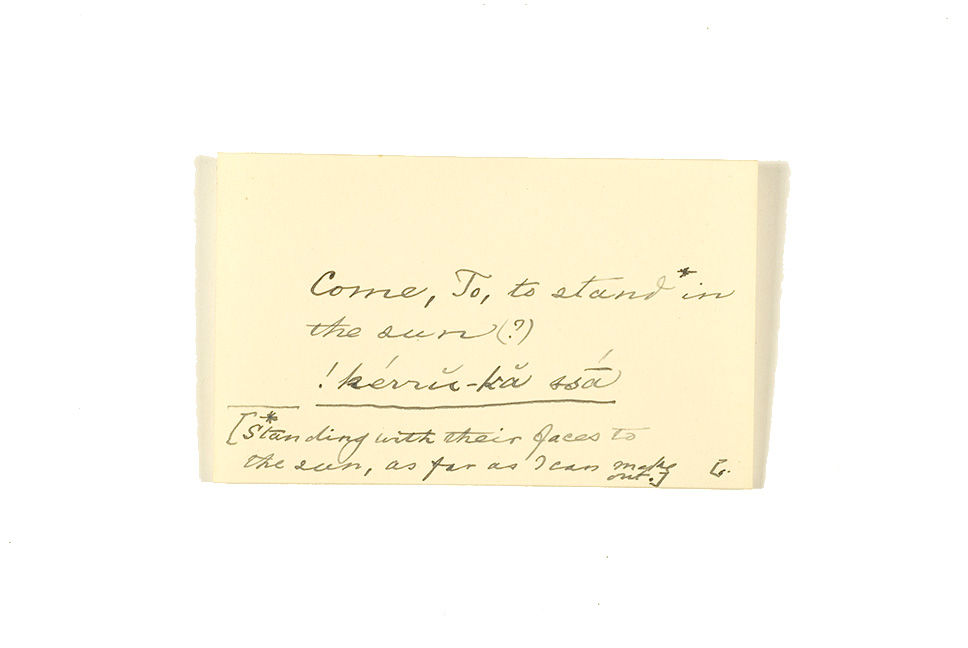 Come, To, to stand* in
the sun (?)
!kérrŭ-kă ssā́
[*Standing with their faces to
the sun, as far as I can make
out.] L.